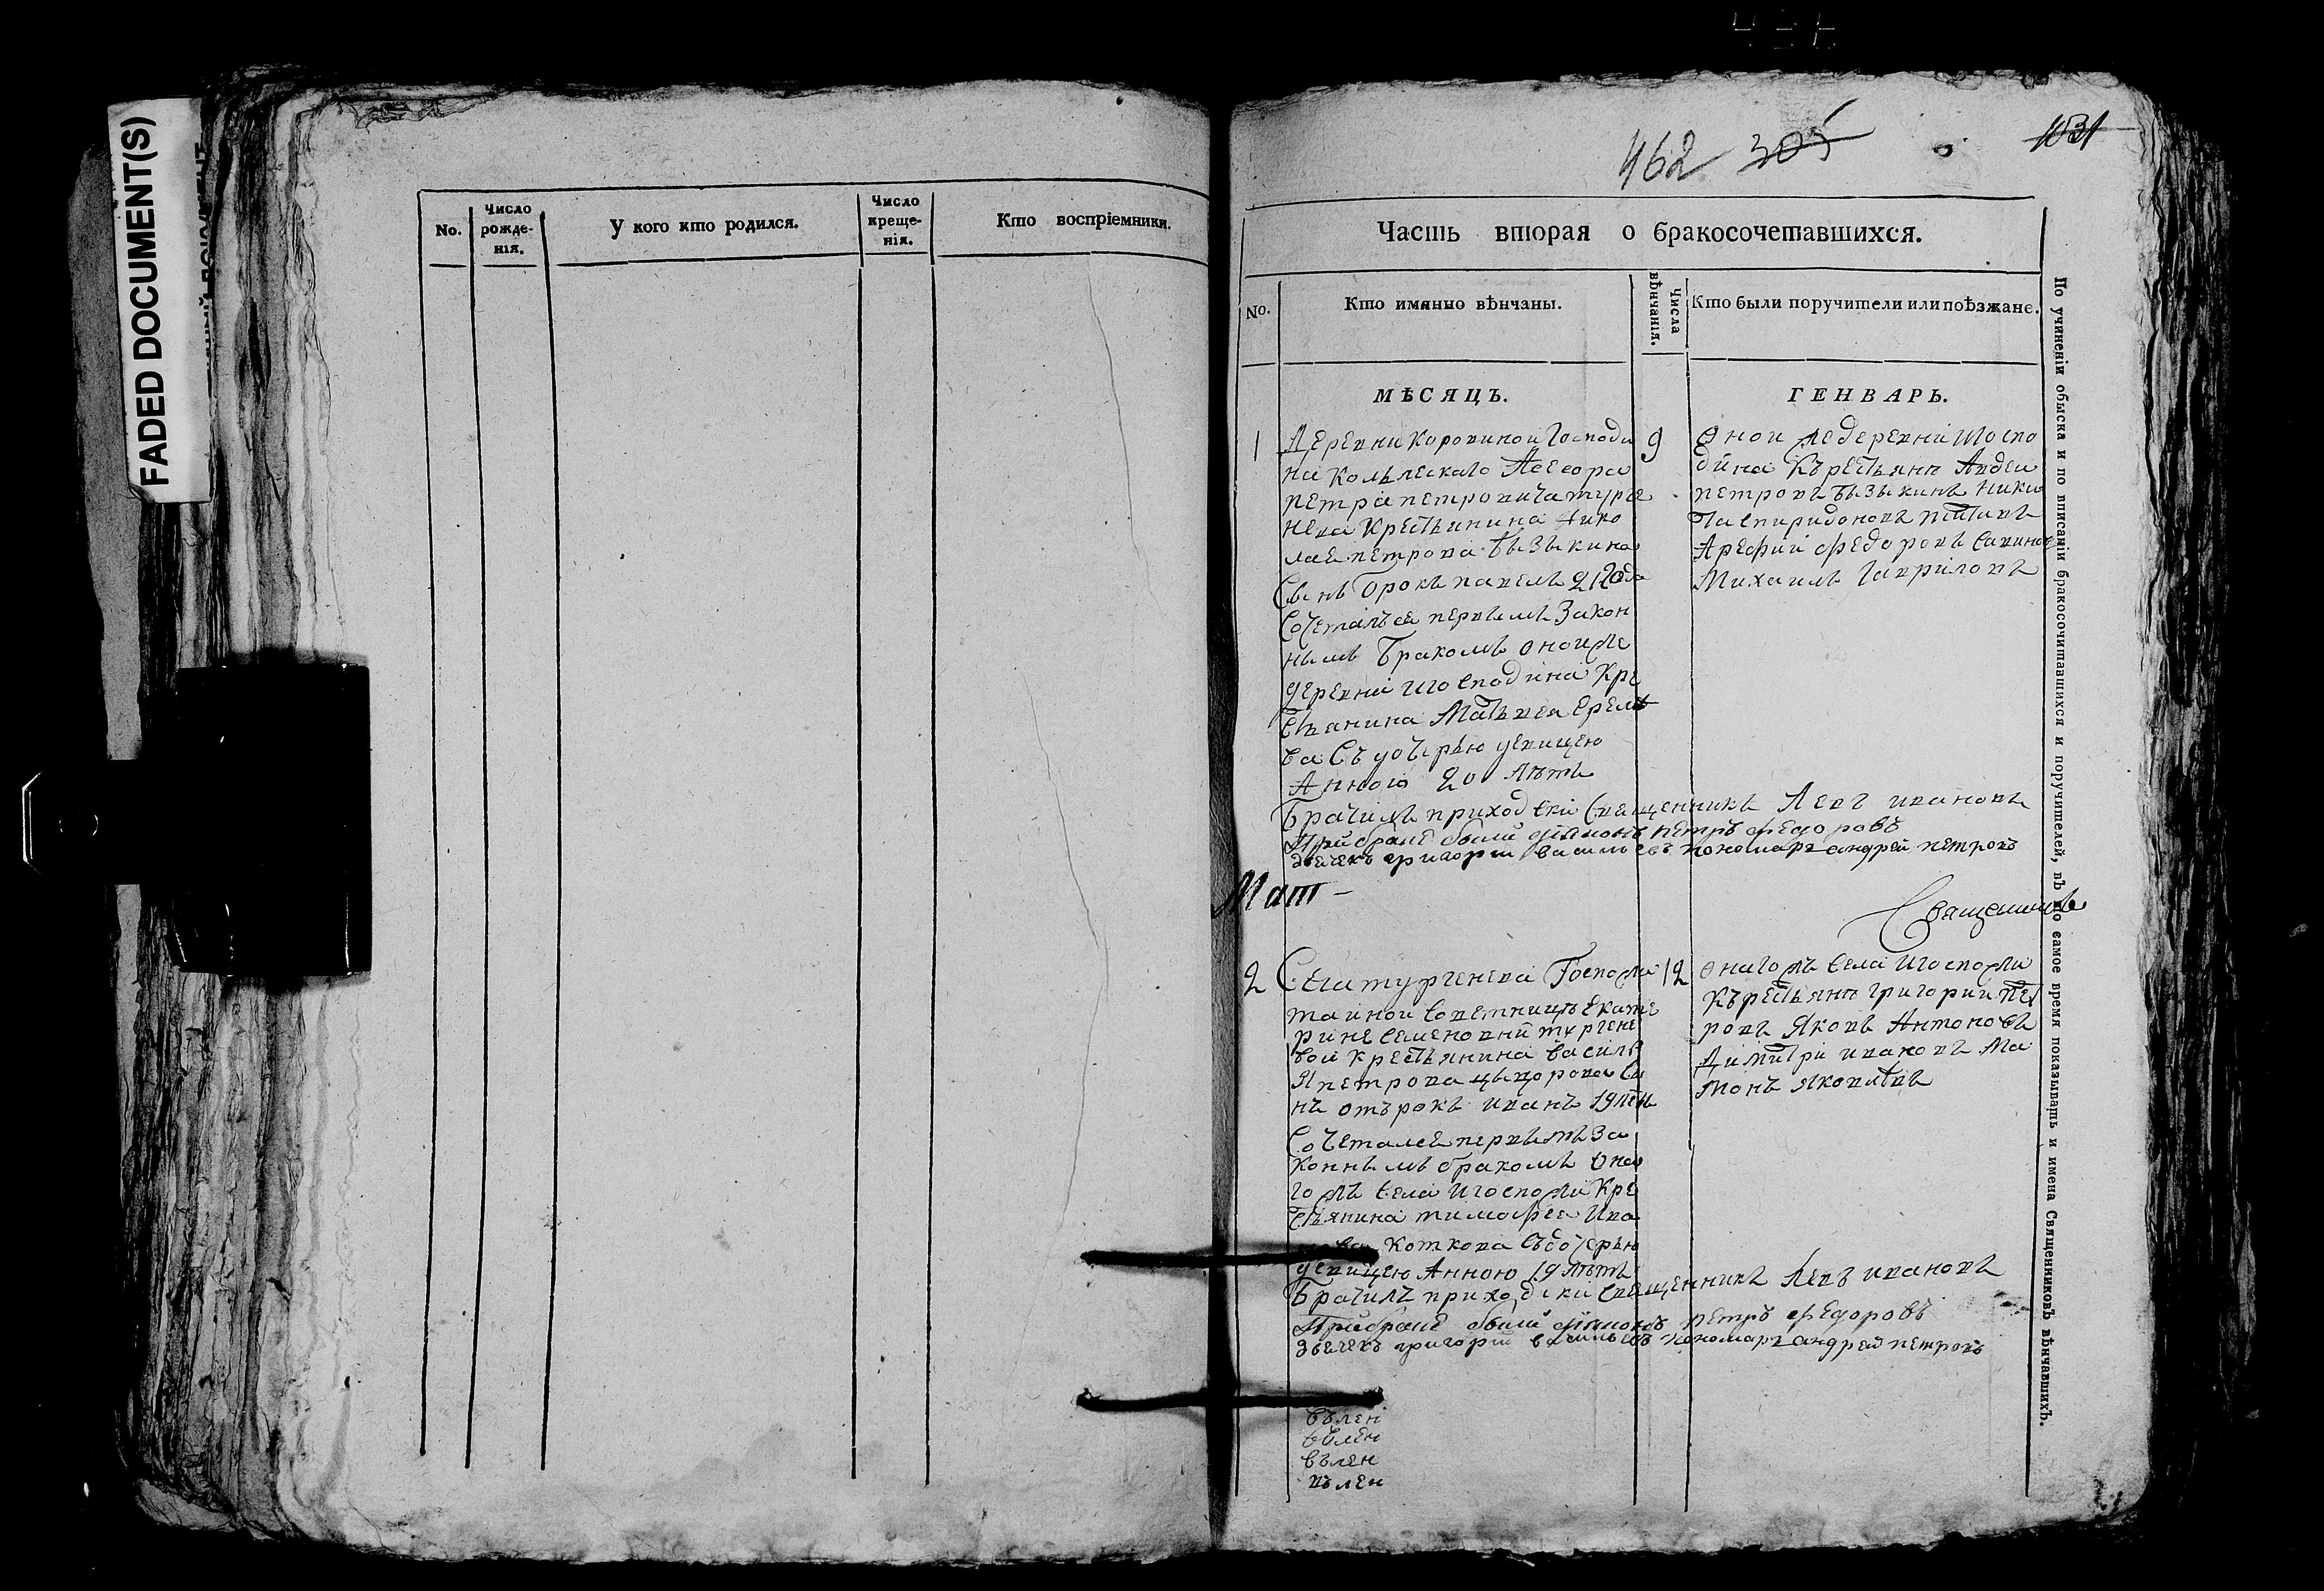 FADED DOCUMENT(S)
No.
Число рожде-нія.
У кого кто родился.
Число креще-нія.
Кто воспріемники.
462 305
1031
Часть вторая о бракосочетавшихся.
No.
Кто имянно вѣнчаны.
Числа вѣнчанія.
Кто были поручители или поѣзжане.
МѢСЯЦЪ.
ГЕНВАРЬ.
1
деревни Коровинои Господи
на Колълескаго Асесора
петра петровича турге
нева Крестьянина Нико
лае петрова бызыкина
Сынъ Отрокъ павелъ 21 года
Сочеталъся первымъ Закон
нымъ Бракомъ оноиже
деревни и господина Кре
стьянина Матьвея
ва Съ дочерью девицею
Анною 20 лѣтъ
9
Оной же деревни и госпо
дина Кърестьяне Авдеи
петровъ бызыкинъ Ники
та спиридоновъ
Арефии федоровъ Савинов
Михаилъ Гавриловъ
Брачилъ приходски Священникъ Левъ ивановъ
При браке были диаконъ петръ федоровъ
дьечекъ григории васильевъ пономарь андрей петровъ
Священникъ
2
Села тургенева Госпожи
таинои Советницы Екате
рине Семеновни тургене
вои крестьянина Василь
я петрова цыцорова Сы
нъ отърокъ иванъ 19 лен
Сочеталсе первымъ За
коннымъ бракомъ она
гожъ Села и госпожи Кре
стьянина тимофея Ива
нова Коткова Съдочерью
девицею Анною 19 лѣтъ
12
Онагожъ Села и госпожи
Кърестьяне григории пет
ровъ Яковъ Антоновъ
Димитри ивановъ Ма
монъ яковлевъ
Брачилъ приходски Священникъ Левъ ивановъ
При браке были диаконъ петръ федоровъ
дьечекъ григории васильевъ пономарь андрей петровъ
вълен
вълен
вълен
вълен
По учиненіи обыска и по вписаніи бракосочитавшихся и поручителей, въ то самое время показывать и имена Священниковъ вѣнчавшихъ.